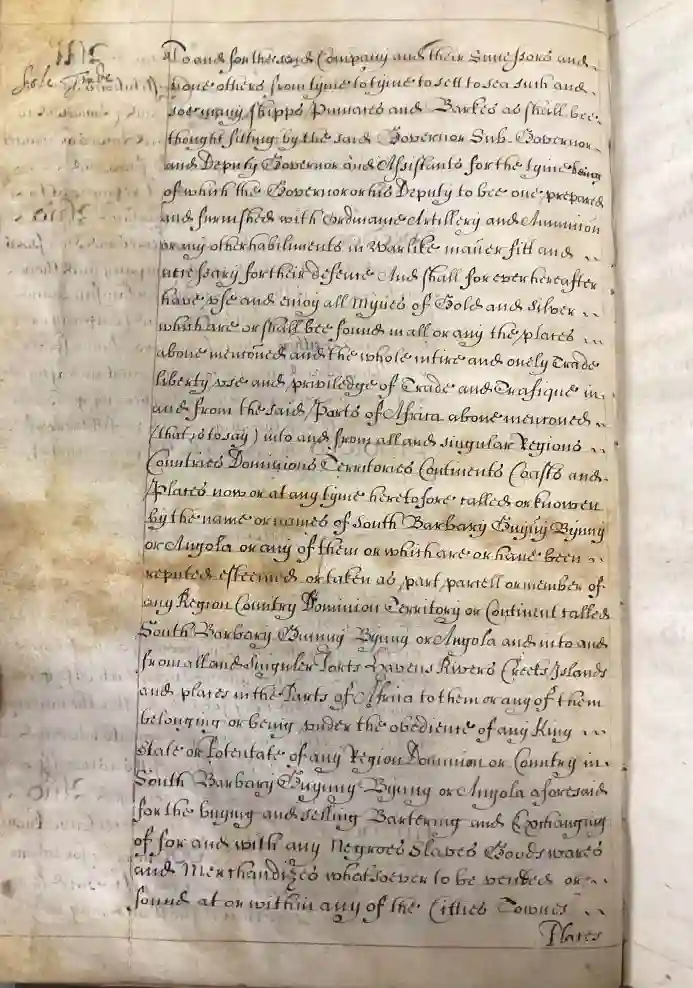 Sole Trade
To and for the said Company and their Successors and
none others from tyme to tyme to sett to sea such and
soe many shipps Pinnaces and Barkes as shall bee
thought fitting by the said Governor Sub-Governor
and Deputy Governor and Assistants for the tyme being
of which the Governor or his Deputy to bee one prepared
and furnished with Ordinance Artillery and Amunicon
or any other habiliments in Warlike maner fitt and
necessary for their defence And shall for ever hereafter
have vse and enioy all Mynes of Gold and Silver
which are or shall bee found in all or any the places
above mentoned and the whole intire and onely Trade
liberty vse and priviledge of Trade and Trafique in
and from the said Parts of Africa above mentoned
(that is to say) into and from all and singular Regions
Countries Dominions Territories Continents Coasts and
Places now or at any tyme heretofore called or knowen
by the name or names of South Barbary Guyny Bynny
or Angola or any of them or which are or have been
reputed esteemed or taken as part parcell or member of
any Region Country Dominion Territory or Continent called
South Barbary Guinny Bynny or Angola and into and
from all and Singuler Ports Havens Rivers Creeks Islands
and places in the Parts of Africa to them or any of them
belonging or being vnder the obedience of any King
State or Potentate of any Region Dominion or Country in
South Barbary Guynny Bynny or Angola aforesaid
for the buying and selling Bartering and Exchanging
of for and with any Negroes Slaves Goods wares
and Merchandizes whatsoever to be vended or
found at or within any of the Citties Townes
Places